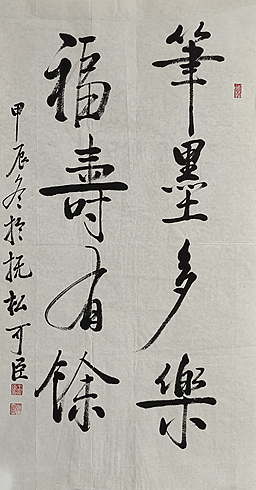 筆墨多樂
福壽有餘
甲辰冬於撫松可臣